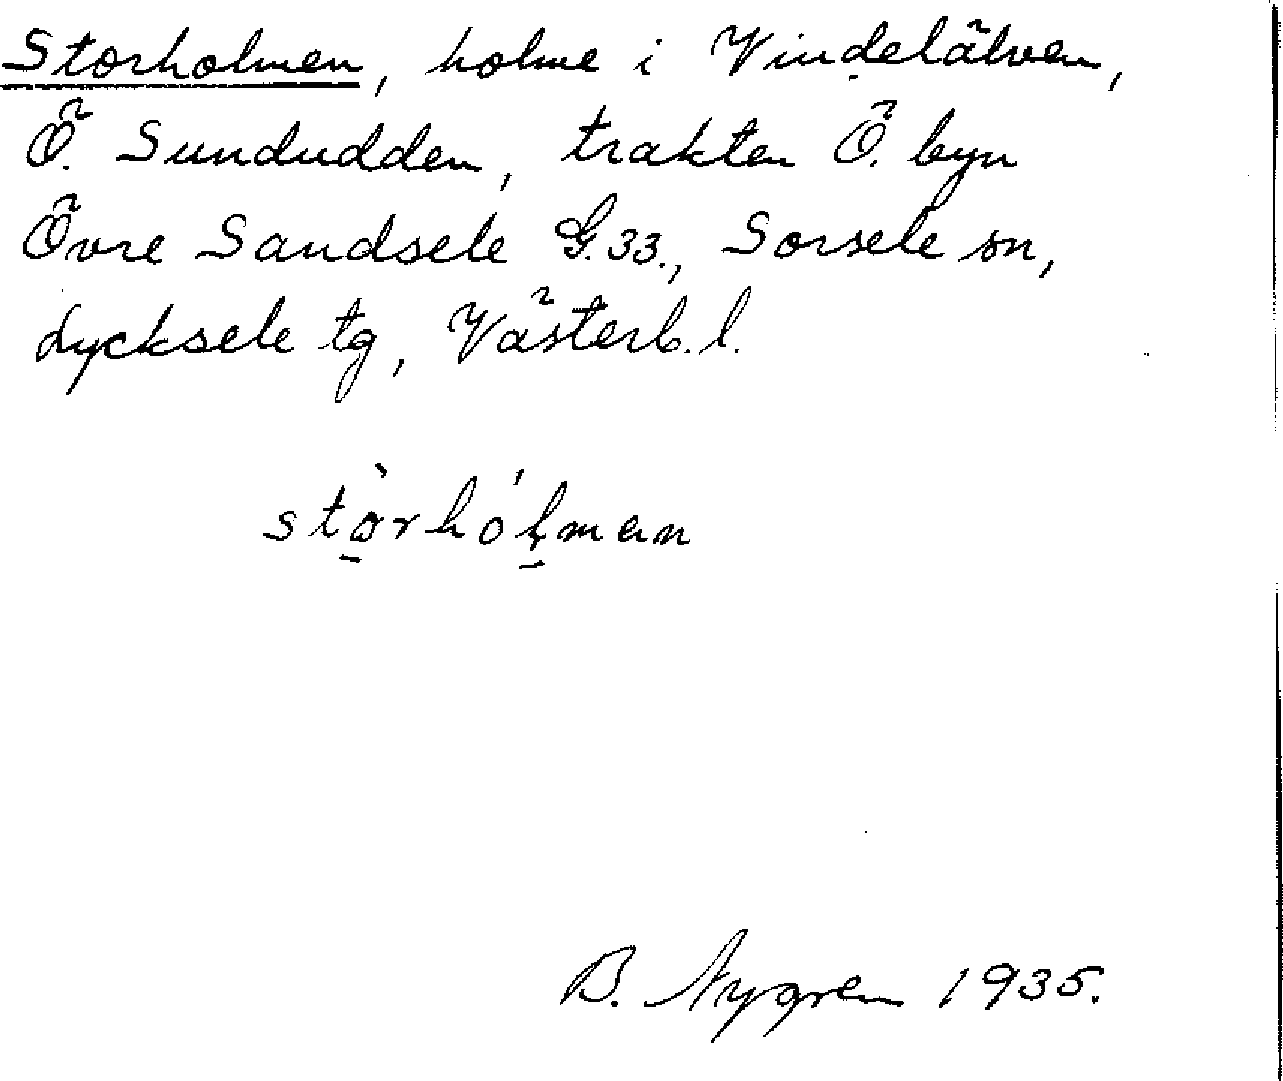 Storholmen, holme i Vindelälven,
Ö. Sundudden, trakten Ö. byn
Övre Sandsele G.33., Sorsele sn,
Lycksele tg, Västerb. l.
stòrhólman
B. Nygren 1935.